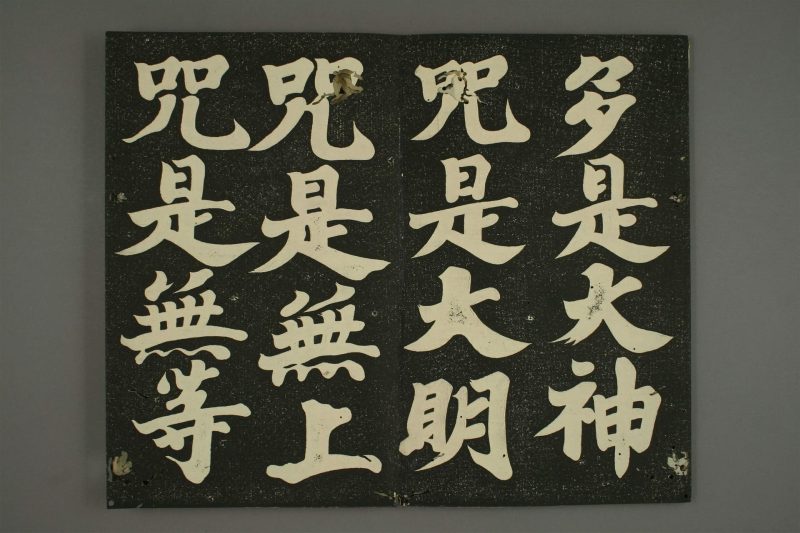 多是大神
咒是大明
咒是無上
咒是無等